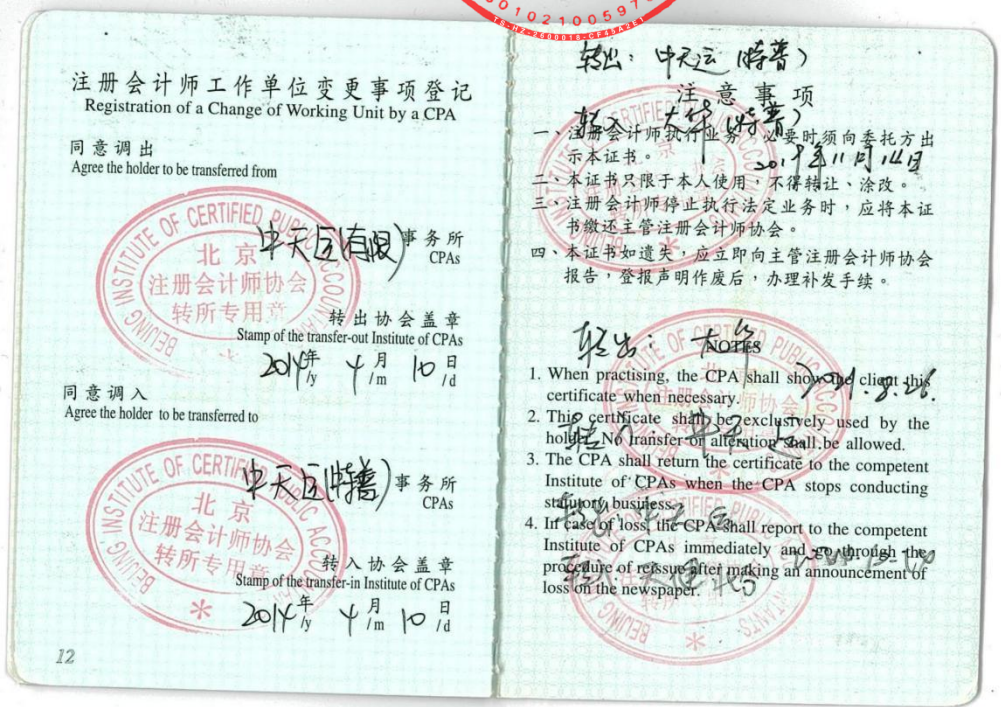 注册会计师工作单位变更事项登记
Registration of a Change of Working Unit by a CPA
同意调出
Agree the holder to be transferred from
中天运(有限)事务所
CPAs
BEIJING INSTITUTE OF CERTIFIED PUBLIC ACCOUNTANTS
北京
注册会计师协会
转所专用章
转出协会盖章
Stamp of the transfer-out Institute of CPAs
2014年/y 4月/m 10日/d
同意调入
Agree the holder to be transferred to
中天运(特普)事务所
CPAs
BEIJING INSTITUTE OF CERTIFIED PUBLIC ACCOUNTANTS
北京
注册会计师协会
转所专用章
转入协会盖章
Stamp of the transfer-in Institute of CPAs
2014年/y 4月/m 10日/d
12
TS-HZ-2600018-CF45A2E1
转出:中天运(特普)
注意事项
转入 大华(特普)
一、注册会计师执行业务,必要时须向委托方出
示本证书。
2019年11月14日
二、本证书只限于本人使用,不得转让、涂改。
三、注册会计师停止执行法定业务时,应将本证
书缴还主管注册会计师协会。
四、本证书如遗失,应立即向主管注册会计师协会
报告,登报声明作废后,办理补发手续。
转出:大华
NOTES
1. When practising, the CPA shall show the client this
certificate when necessary.
2. This certificate shall be exclusively used by the
holder. No transfer or alteration shall be allowed.
3. The CPA shall return the certificate to the competent
Institute of CPAs when the CPA stops conducting
statutory business.
4. In case of loss, the CPA shall report to the competent
Institute of CPAs immediately and go through the
procedure of reissue after making an announcement of
loss on the newspaper.